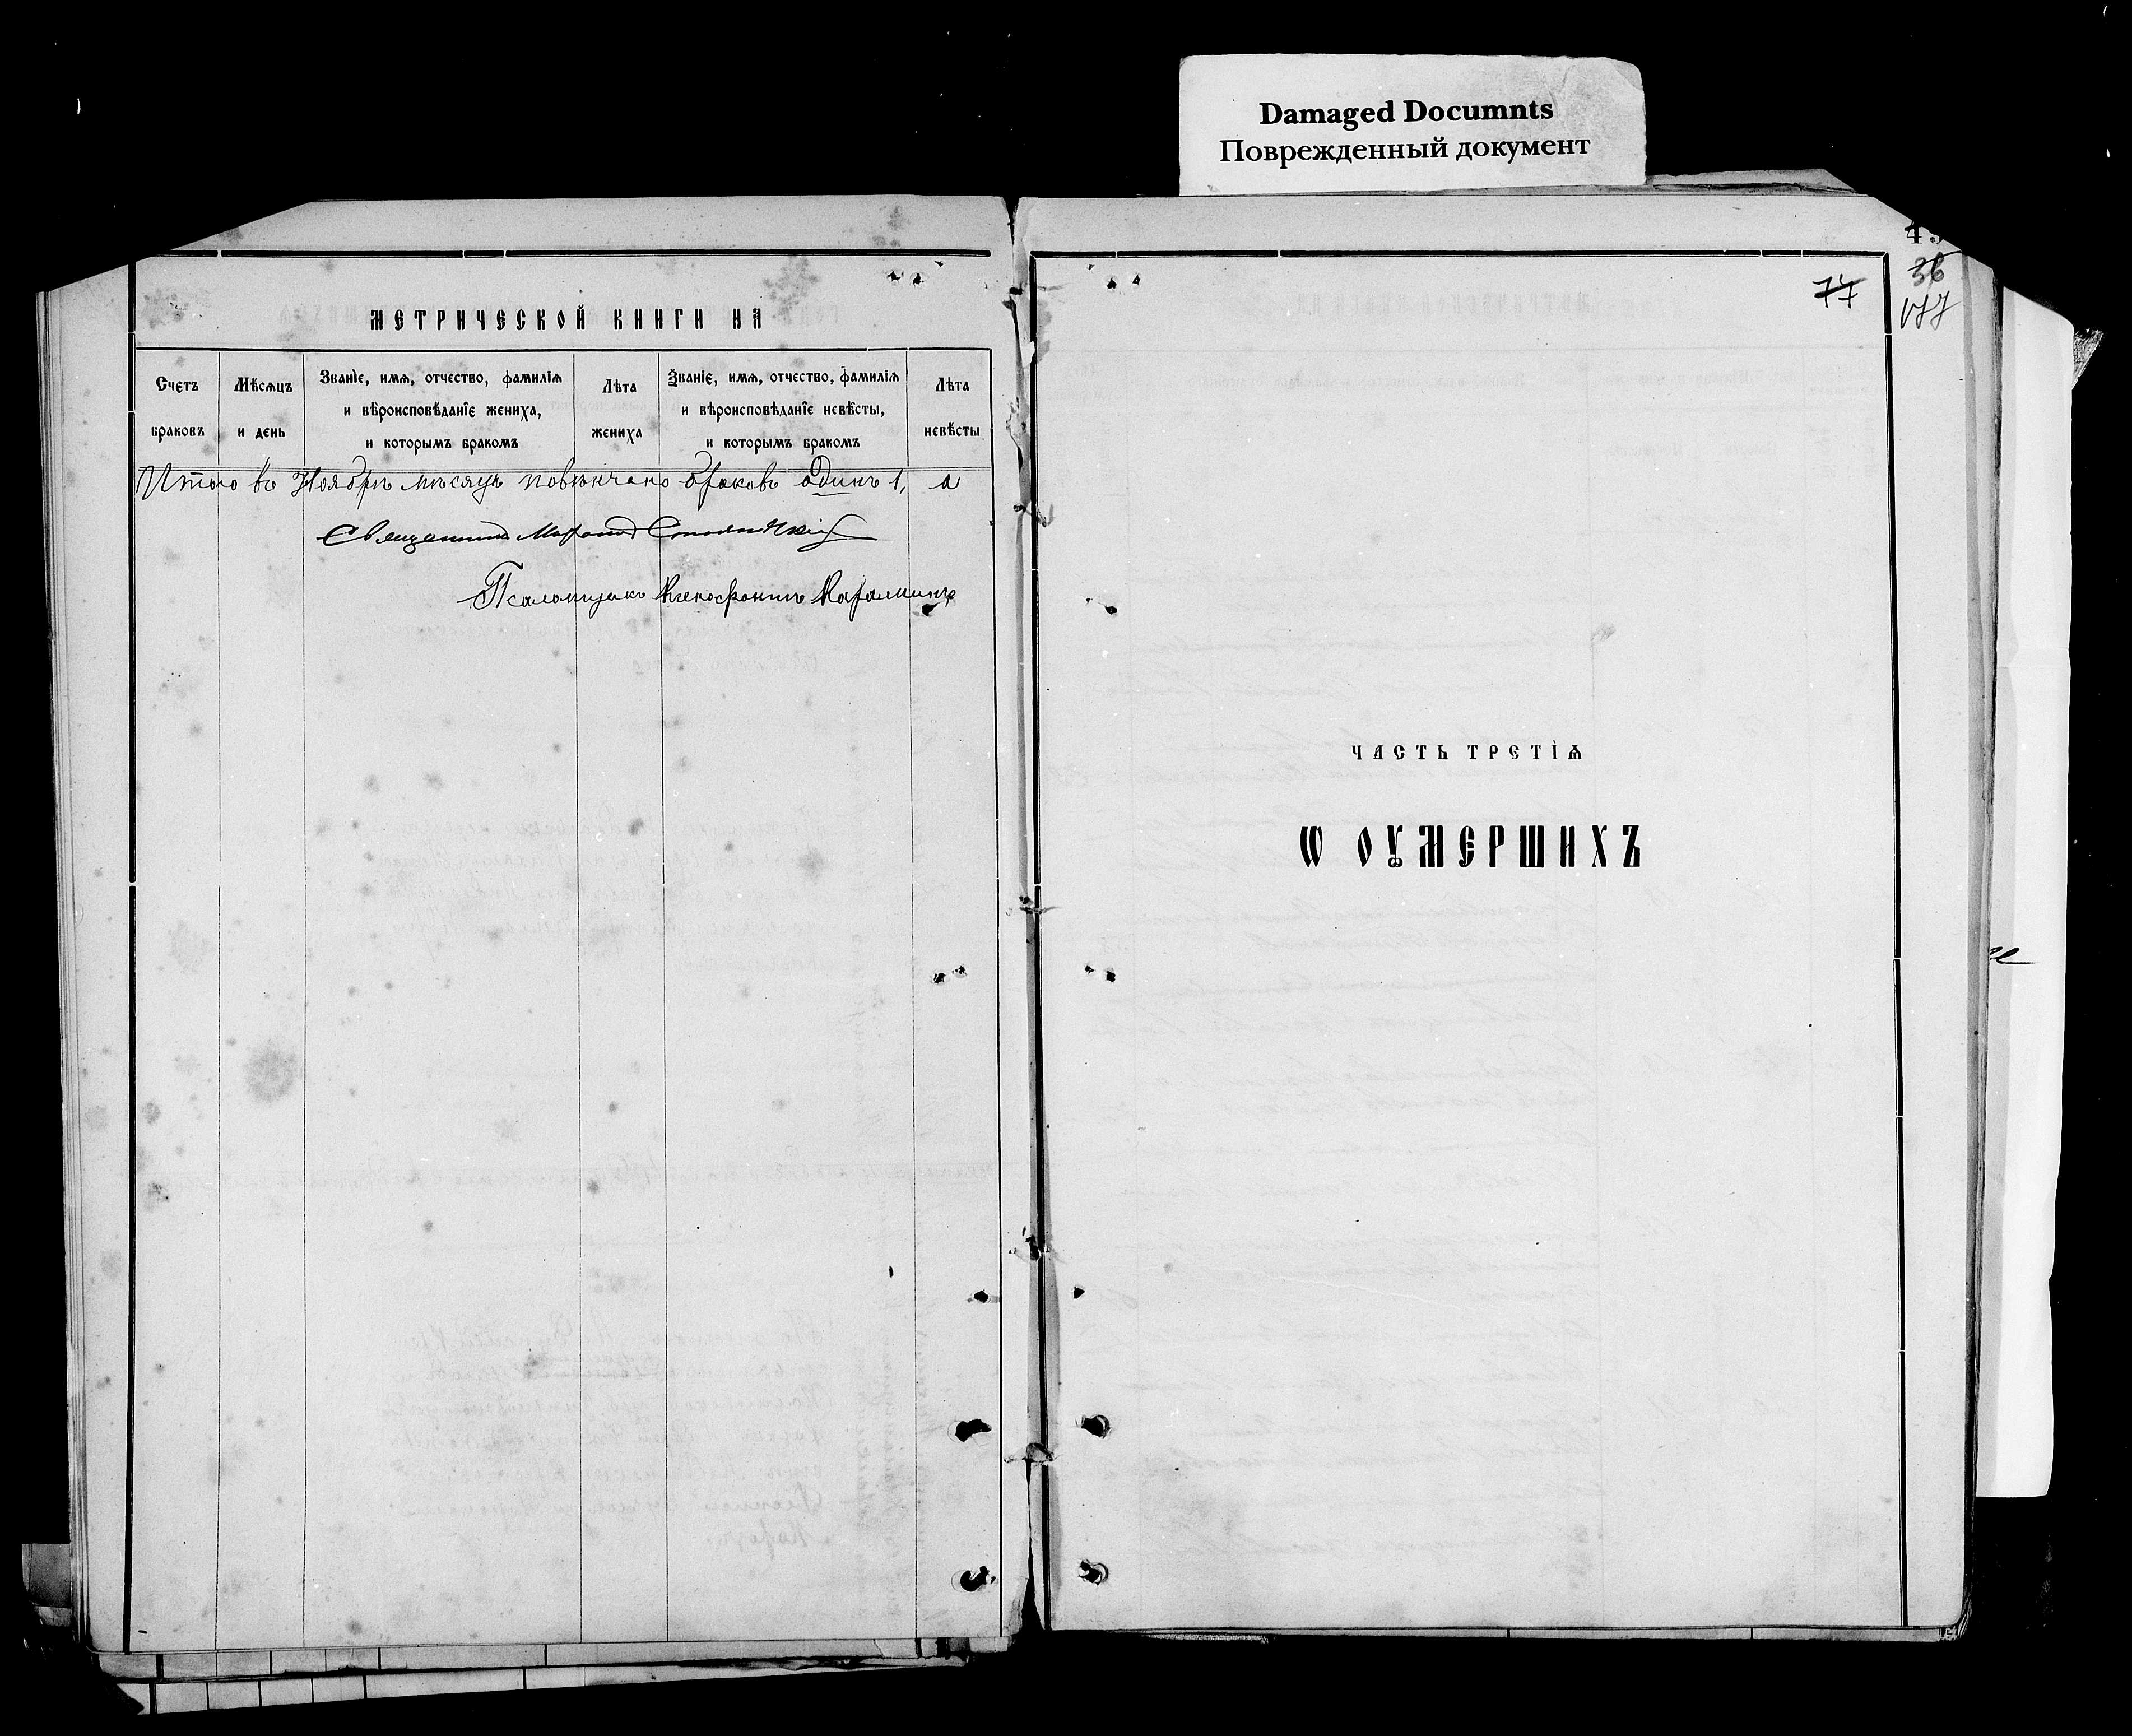 Damaged Documnts
Поврежденный документ
МЕТРИЧЕСКОЙ КНИГИ НА
Счетъ браковъ
Мѣсяцъ и день
Званіе, имя, отчество, фамилія
и вѣроисповѣданіе жениха,
и которымъ бракомъ
Лѣта жениха
Званіе, имя, отчество, фамилія
и вѣроисповѣданіе невѣсты,
и которымъ бракомъ
Лѣта невѣсты
Итого въ Ноябрѣ мѣсяцѣ повѣнчано браковъ одинъ 1,
Священникъ
Псаломщикъ Ксенофонтъ
77
36
177
ЧАСТЬ ТРЕТІЯ
Ѡ ОУМЕРШИХЪ